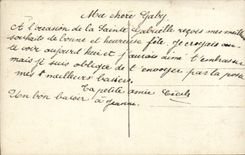 Ma chère Gaby
A l'occasion de la Sainte Gabrielle reçois mes meilleurs
souhaits de bonne et heureuse fête. Je croyais
te voir aujourd'hui et j'aurais aimé t'embrasser
mais je suis obligée de t'envoyer par la poste
mes meilleurs baisers.
Ta petite amie
Un bon baiser à Jeanne.